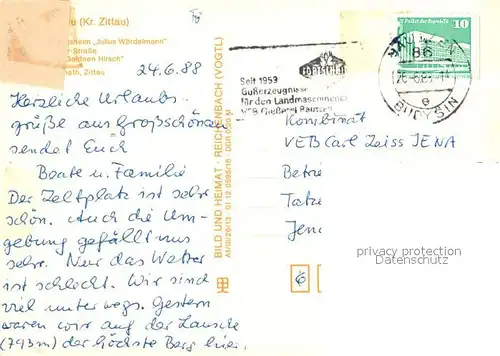 (Kr. Zittau)
"Julius Wördelmann"
Straße
Goldnen Hirsch"
Zittau
24.6.88
Herzliche Urlaubs-
grüße aus Großschönau
sendet Euch
Beate u. Familie
Der Zeltplatz ist sehr
schön. Auch die Um-
gebung gefällt uns
sehr. Nur das Wetter
ist schlecht. Wir sind
viel unterwegs. Gestern
waren wir auf der Lausche
(793m) der höchste Berg hier.
BILD UND HEIMAT · REICHENBACH (VOGTL)
A1/III/26/13 01 12 0595/16
Seit 1953
Gußerzeugnisse
für den Landmaschinenbau
VEB Gießerei Bautzen
Palast der Republik
10
86
e
BUDYŠIN
Kombinat
VEB Carl Zeiss JENA
privacy protection
Datenschutz
6